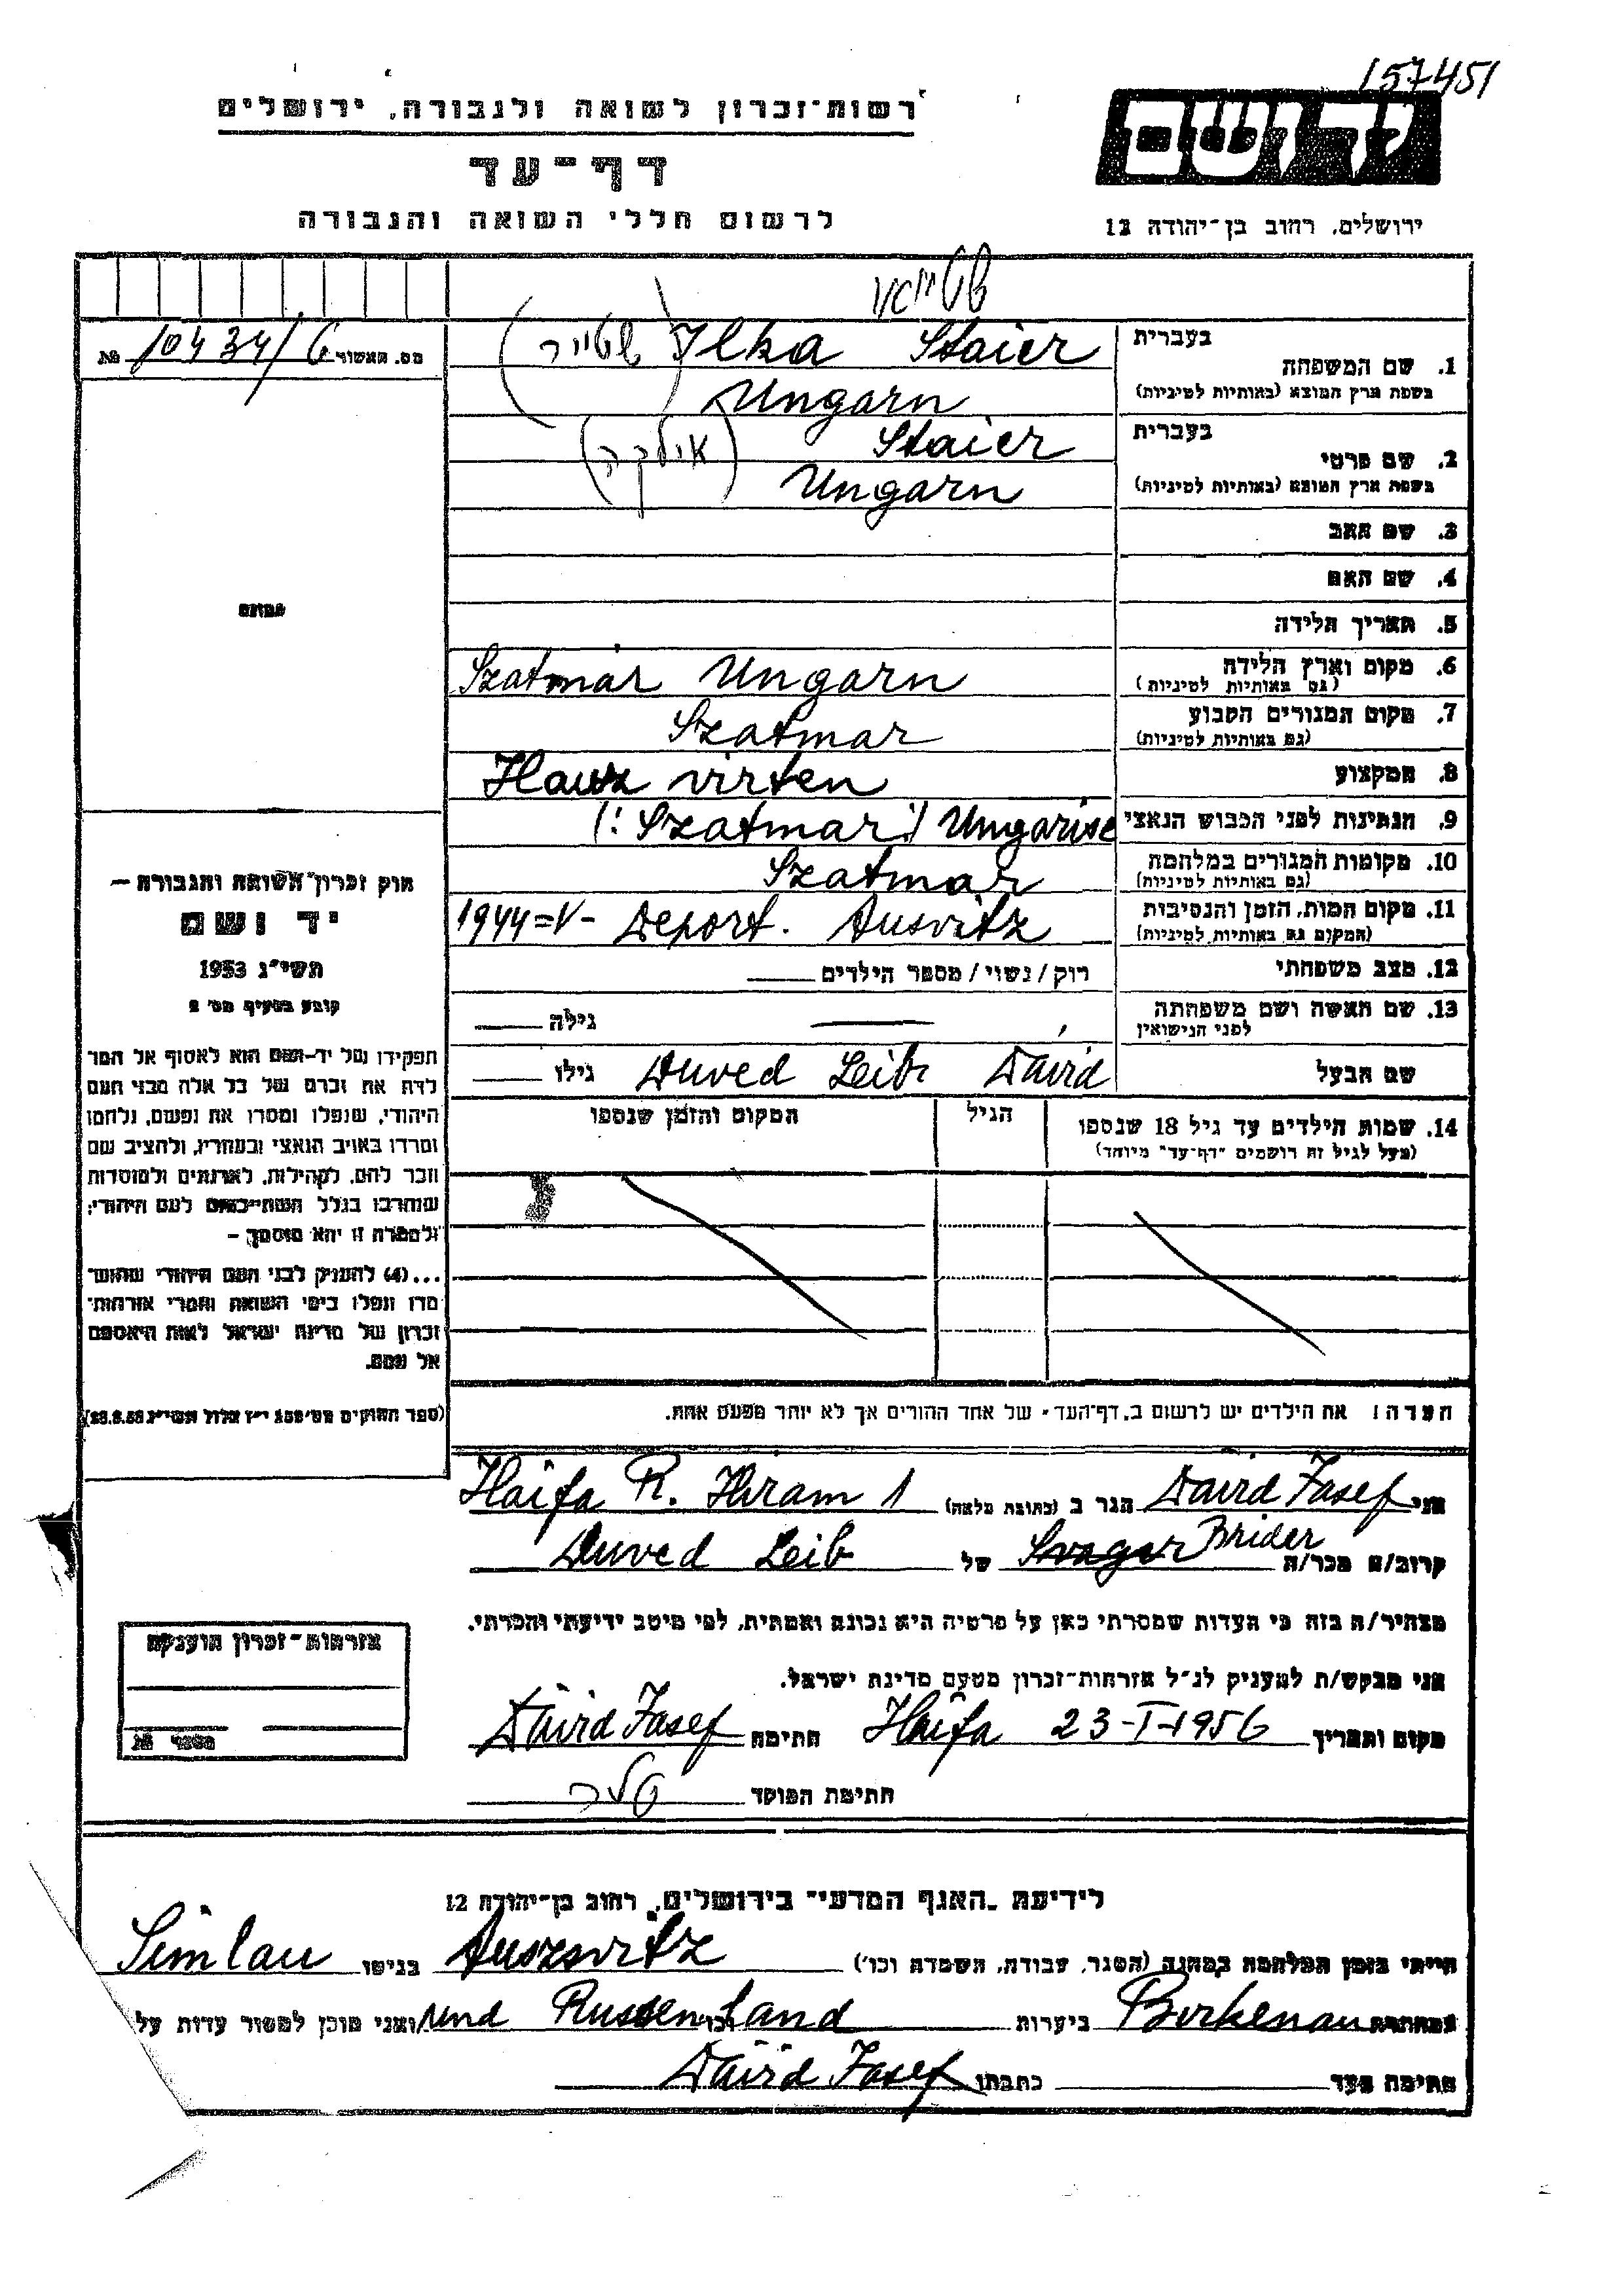 157451
יד ושם
ירושלים, רחוב בן-יהודה 12
רשות-זכרון לשואה ולגבורה, ירושלים
דף-עד
לרשום חללי השואה והגבורה
מס. האשור 10434/G №
בעברית
1. שם המשפחה Ilka Staier (שטייר)
בשפת ארץ המוצא (באותיות לטיניות) Ungarn
בעברית Staier
2. שם פרטי (אילקה)
בשפת ארץ המוצא (באותיות לטיניות) Ungarn
3. שם האב
4. שם האם
5. תאריך הלידה
6. מקום וארץ הלידה Szatmár Ungarn
(גם באותיות לטיניות)
7. מקום המגורים הקבוע Szatmar
(גם באותיות לטיניות)
8. המקצוע Hausz virten
9. הנתינות לפני הכבוש הנאצי (: Szatmar :) Ungarise
10. מקומות המגורים במלחמה Szatmar
(גם באותיות לטיניות)
11. מקום המות, הזמן והנסיבות 1944=V- Deport. Ausvitz
(המקום גם באותיות לטיניות)
12. מצב משפחתי רוק/נשוי/מספר הילדים
13. שם האשה ושם משפחתה גילה
לפני הנישואין
שם הבעל Duved Leib Dávid גילו
14. שמות הילדים עד גיל 18 שנספו הגיל המקום והזמן שנספו
(מעל לגיל זה רושמים "דף-עד" מיוחד)
הערה: את הילדים יש לרשום ב"דף-העד" של אחד ההורים אך לא יותר מפעם אחת.
תמונה
חוק זכרון השואה והגבורה —
יד ושם
תשי"ג 1953
קובע בסעיף מס' 2
תפקידו של יד-ושם הוא לאסוף אל המו
לדת את זכרם של כל אלה מבני העם
היהודי, שנפלו ומסרו את נפשם, נלחמו
ומרדו באויב הנאצי ובעוזריו, ולהציב שם
וזכר להם, לקהילות, לארגונים ולמוסדות
שנחרבו בגלל השתייכותם לעם היהודי;
ולמטרה זו יהא מוסמך —
...(4) להעניק לבני העם היהודי שהוש
מדו ונפלו בימי השואה והמרי אזרחות-
זכרון של מדינת ישראל לאות היאספם
אל עמם.
(ספר החוקים מס' 132 י"ז אלול תשי"ג 28.8.53)
אני David Jasef הגר ב (כתובת מלאה) Haifa R. Hiram 1
קרוב/ה מכר/ה Svager Brider של Duved Leib
מצהיר/ה בזה כי העדות שמסרתי כאן על פרטיה היא נכונה ואמתית, לפי מיטב ידיעתי והכרתי.
אני מבקש/ת להעניק לנ"ל אזרחות-זכרון מטעם מדינת ישראל.
מקום ותאריך Haifa 23-I-1956 חתימה Dávid Jasef
חתימת הפוקד
אזרחות-זכרון הוענקה
מספר №
לידיעת "האגף המדעי" בירושלים, רחוב בן-יהודה 12
הייתי בזמן המלחמה במחנה (הסגר, עבודה, השמדה וכו') Auszvitz בגיטו
במחתרת Birkenau ביערות und Russenland ואני מוכן למסור עדות על
חתימת העד כתבתו Dávid Jasef